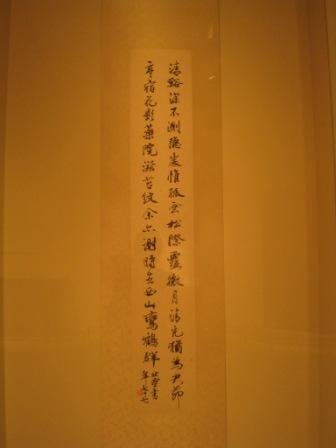 清谿深不測隱處惟孤雲松際露微月清光猶為君茆
亭宿花影藥院滋苔紋余亦謝時去西山鸞鶴群